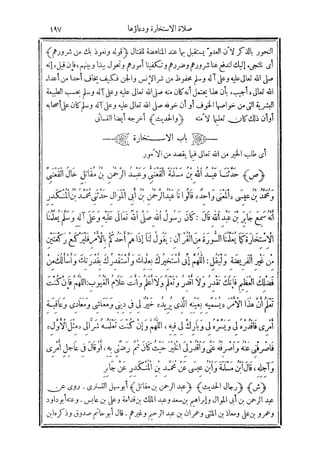 صلاة الاستخارة ودعاؤها ١٩٧
النحور بالذكر لأن العدو يستقبل بها عند المناهضة للقتال (قوله ونعوذ بك من شرورهم)
أى نلتجىء إليك لتدفع عنا شرورهم وضررهم وتكفينا أمورهم وتحول بيننا وبينهم. فإن قيل، إنه
صلى الله تعالى عليه وعلى آله وسلم محفوظ من شر الإنس والجن فكيف يخاف أحدا من أعداء
الله تعالى. أجيب. بأن هذا يحتمل أنه كان منه صلى الله تعالى عليه وعلى آله وسلم بحسب الطبيعة
البشرية التى من خواصها الخوف أو أن خوفه صلى الله تعالى عليه وعلى آله وسلم كان على أصحابه
أو أن ذلك كان تعليما لأمته (والحديث) أخرجه أيضا النسائى
باب الاستخارة
أى طلب الخير من الله تعالى فيما يقصد من الأمور
(ص) حَدَّثَنَا عَبْدُ اللهِ بْنُ مَسْلَمَةَ الْقَعْنَبِىُّ وَعَبْدُ الرَّحْمٰنِ بْنُ مُقَاتِلٍ خَالُ الْقَعْنَبِىِّ
وَمُحَمَّدُ بْنُ عِيسَى الْمَعْنَى وَاحِدٌ، قَالُوا نَا عَبْدُ الرَّحْمٰنِ بْنُ أَبِى الْمَوَالِ حَدَّثَنِى مُحَمَّدُ بْنُ الْمُنْكَدِرِ
أَنَّهُ سَمِعَ جَابِرَ بْنَ عَبْدِ اللهِ قَالَ: كَانَ رَسُولُ اللهِ صَلَّى اللهُ تَعَالَى عَلَيْهِ وَعَلَى آلِهِ وَسَلَّمَ يُعَلِّمُنَا
الِاسْتِخَارَةَ كَمَا يُعَلِّمُنَا السُّورَةَ مِنَ الْقُرْآنِ: يَقُولُ لَنَا إِذَا هَمَّ أَحَدُكُمْ بِالْأَمْرِ فَلْيَرْكَعْ رَكْعَتَيْنِ
مِنْ غَيْرِ الْفَرِيضَةِ وَلْيَقُلْ: اللَّهُمَّ إِنِّى أَسْتَخِيرُكَ بِعِلْمِكَ وَأَسْتَقْدِرُكَ بِقُدْرَتِكَ وَأَسْأَلُكَ مِنْ
فَضْلِكَ الْعَظِيمِ فَإِنَّكَ تَقْدِرُ وَلَا أَقْدِرُ وَتَعْلَمُ وَلَا أَعْلَمُ وَأَنْتَ عَلَّامُ الْغُيُوبِ: اللَّهُمَّ فَإِنْ كُنْتَ
تَعْلَمُ أَنَّ هٰذَا الْأَمْرَ يُسَمِّيهِ بِعَيْنِهِ الَّذِى يُرِيدُ خَيْرٌ لِى فِى دِينِى وَمَعَاشِى وَمَعَادِى وَعَاقِبَةِ
أَمْرِى فَاقْدُرْهُ لِى وَيَسِّرْهُ لِى وَبَارِكْ لِى فِيهِ، اللَّهُمَّ وَإِنْ كُنْتَ تَعْلَمُهُ شَرًّا لِى مِثْلَ الْأَوَّلِ،
فَاصْرِفْنِى عَنْهُ وَاصْرِفْهُ عَنِّى وَاقْدُرْ لِىَ الْخَيْرَ حَيْثُ كَانَ ثُمَّ رَضِّنِى بِهِ. أَوْ قَالَ فِى عَاجِلِ أَمْرِى
وَآجِلِهِ، قَالَ ابْنُ مَسْلَمَةَ وَابْنُ عِيسَى عَنْ مُحَمَّدِ بْنِ الْمُنْكَدِرِ عَنْ جَابِرٍ
(ش) (رجال الحديث) (عبد الرحمن بن مقاتل) أبو سهل التسترى. روى عن
عبد الرحمن بن أبى الموال وإبراهيم بن سعد وعبد الملك بن قدامة وعلى بن عابس. وعنه أبو داود
وعمرو بن على ومعاذ بن المثنى وعمران بن عبد الرحيم وغيرهم. قال أبو حاتم صدوق وذكره ابن